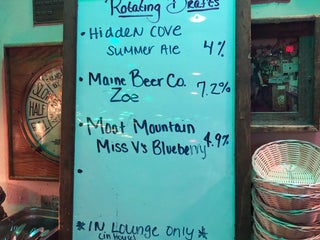 Rotating Drafts
• Hidden Cove
Summer Ale 4%
• Maine Beer Co. 7.2%
Zoe
• Moat Mountain
Miss V's Blueberry 4.9%
•
*IN Lounge only*
(in house)
HALF